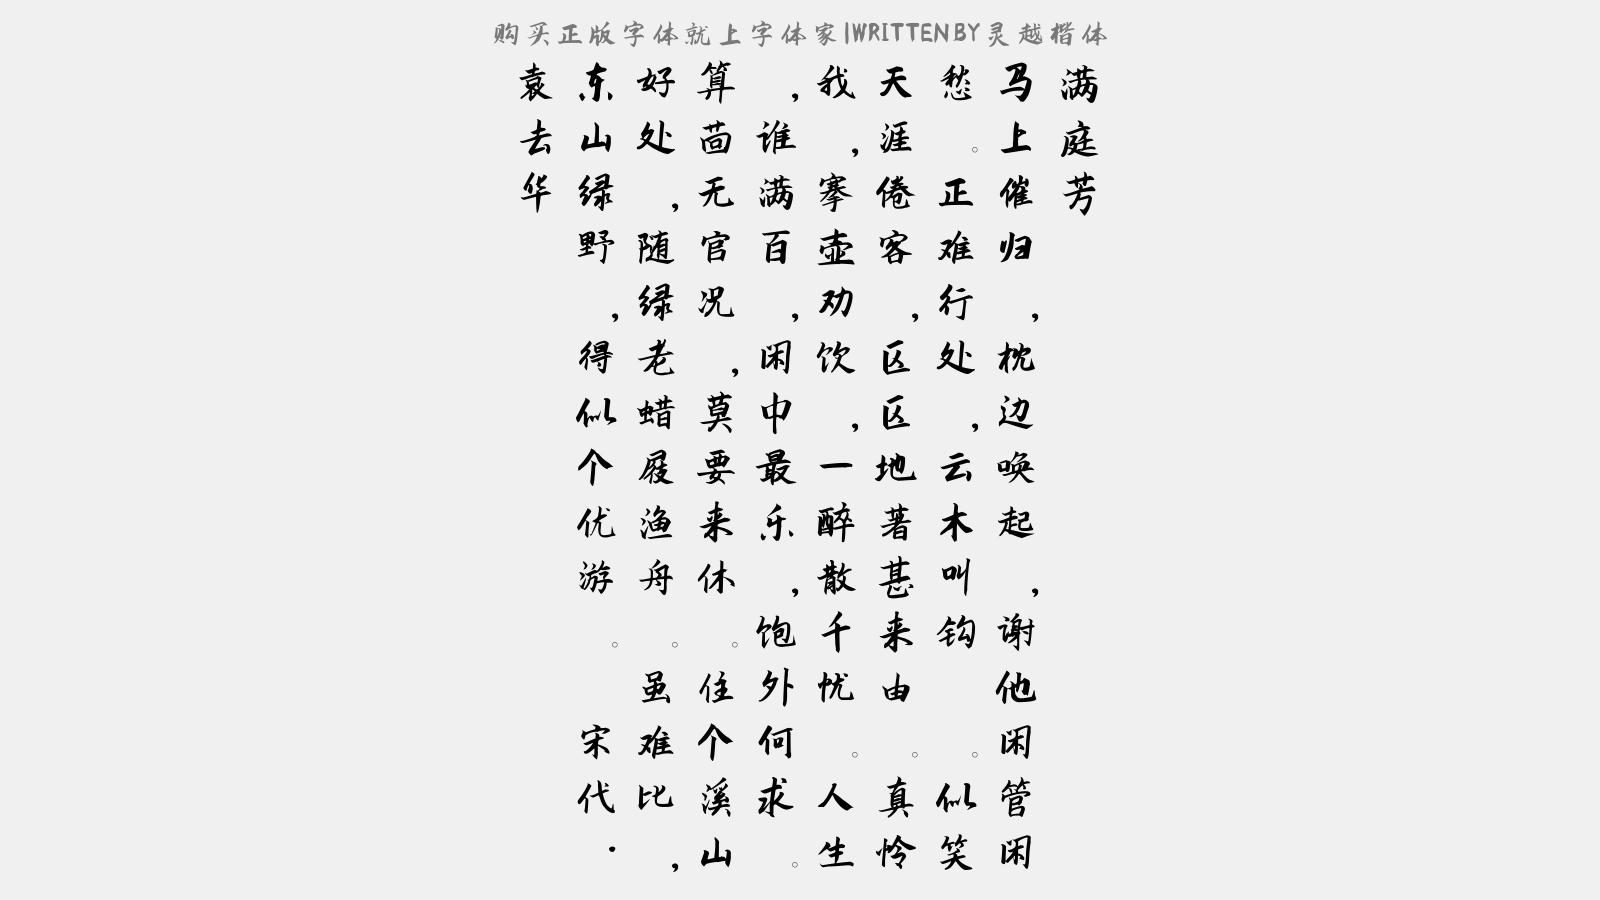 购买正版字体就上字体家|WRITTEN BY灵越楷体
满庭芳
马上催归，枕边唤起，谢他闲管闲
愁。正难行处，云木叫钩 。似笑
天涯倦客，区区地著甚来由。真怜
我，搴壶劝饮，一醉散千忧。人生
，谁满百，闲中最乐，饱外何求。
算茴无官况，莫要来休。住个溪山
好处，随绿老蜡屐渔舟。虽难比，
东山绿野，得似个优游。 宋代·
袁去华